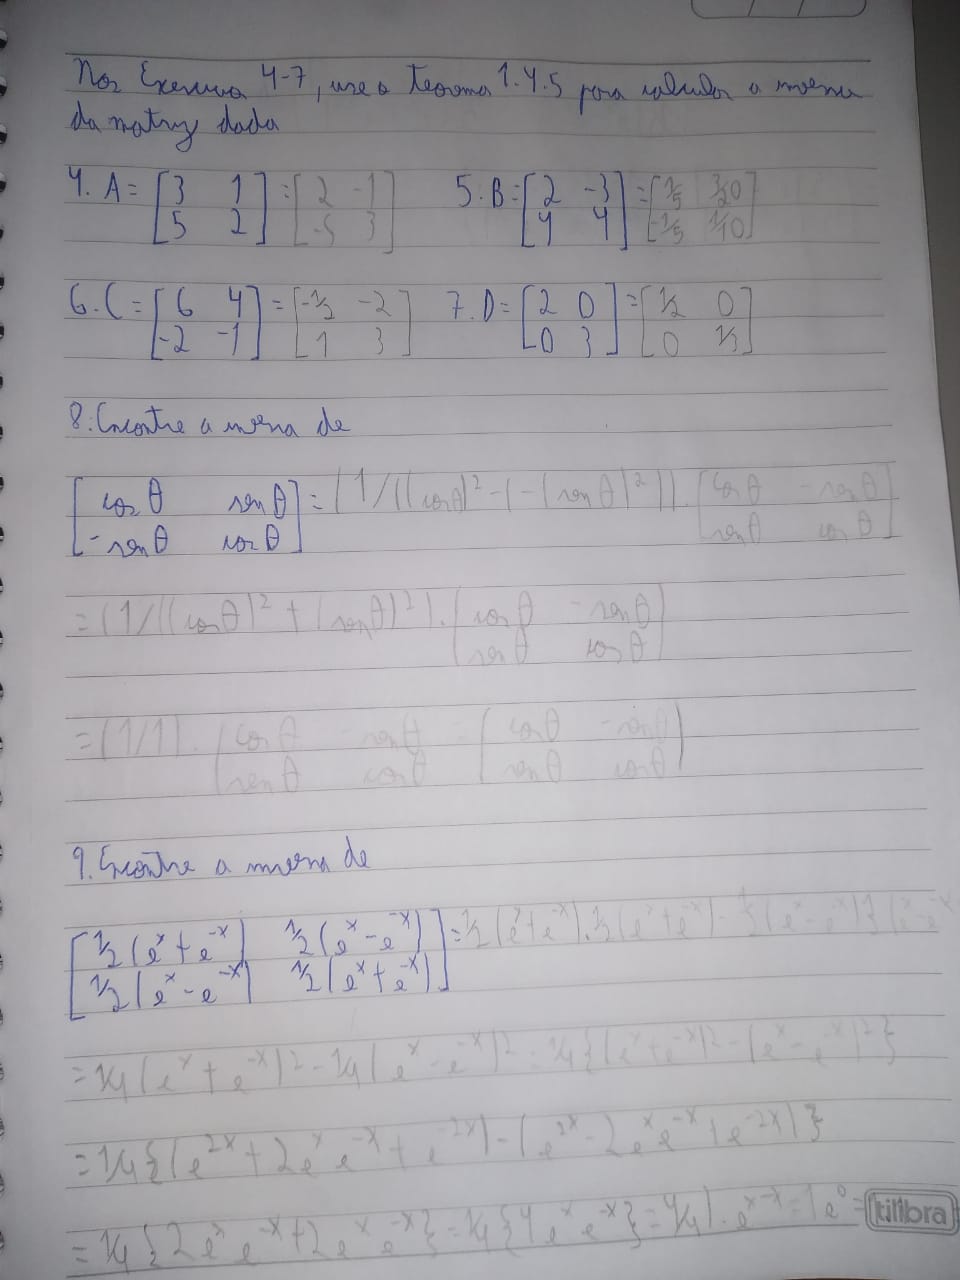 Nos Exercícios 4-7, use o teorema 1.4.5 para calcular a inversa
da matriz dada
4. A = [3 1; 5 2] = [2 -1; -5 3] 5. B = [2 -3; 4 4] = [1/5 3/20; -1/5 1/10]
6. C = [6 4; -2 -1] = [-1/2 -2; 1 3] 7. D = [2 0; 0 3] = [1/2 0; 0 1/3]
8. Encontre a inversa de
[cos θ sen θ; -sen θ cos θ] = (1/((cos θ)² - (-(sen θ)²))) . [cos θ -sen θ; sen θ cos θ]
= (1/((cos θ)² + (sen θ)²) . [cos θ -sen θ; sen θ cos θ]
= (1/1) . [cos θ -sen θ; sen θ cos θ] = [cos θ -sen θ; sen θ cos θ]
9. Encontre a inversa de
[1/2(eˣ + e⁻ˣ) 1/2(eˣ - e⁻ˣ); 1/2(eˣ - e⁻ˣ) 1/2(eˣ + e⁻ˣ)] = 1/2(eˣ + e⁻ˣ) . 1/2(eˣ + e⁻ˣ) - 1/2(eˣ - e⁻ˣ) 1/2(eˣ - e⁻ˣ
= 1/4(eˣ + e⁻ˣ)² - 1/4(eˣ - e⁻ˣ)² = 1/4{(eˣ + e⁻ˣ)² - (eˣ - e⁻ˣ)²}
= 1/4{(e²ˣ + 2eˣe⁻ˣ + e⁻²ˣ) - (e²ˣ - 2eˣe⁻ˣ + e⁻²ˣ)}
= 1/4{2eˣe⁻ˣ + 2eˣe⁻ˣ} = 1/4{4eˣe⁻ˣ} = 4/4) . eˣ⁻ˣ = 1e⁰ =
tilibra